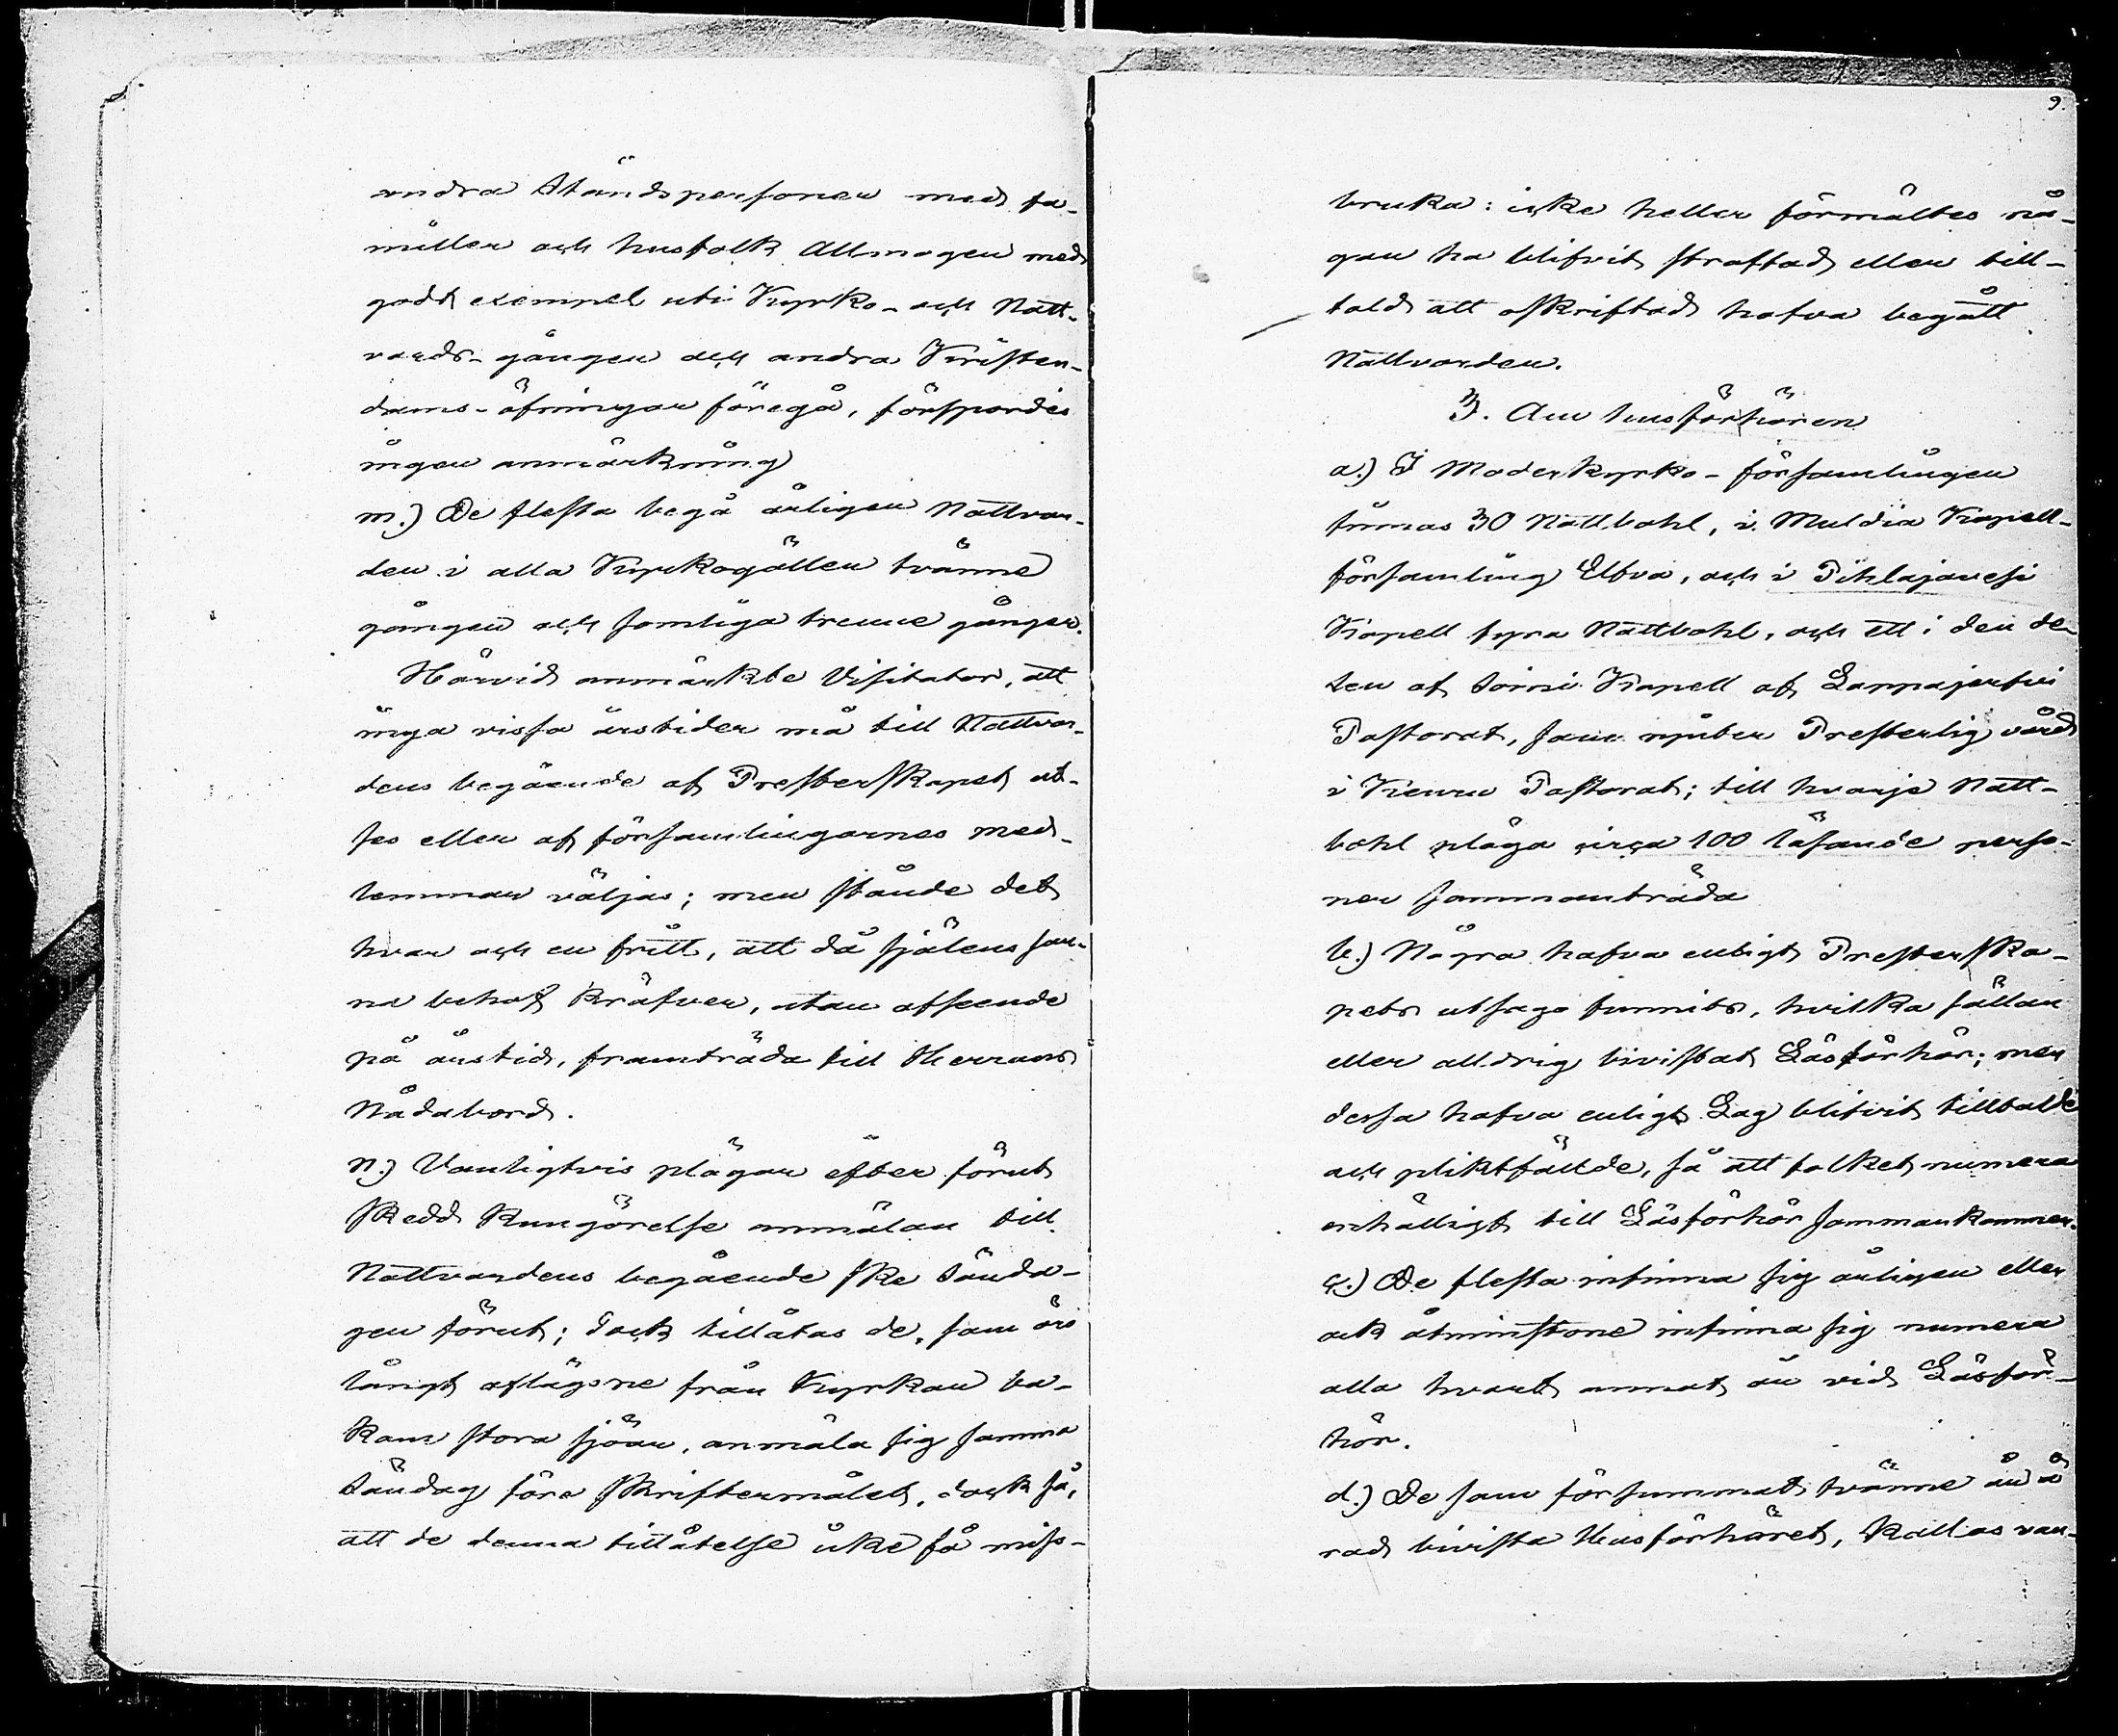 andra Ståndspersoner med fa-
miller och husfolk Allmogen med
godt exempel uti Kyrko- och Natt-
vards-gången och andra Kristen-
doms-öfningar föregå, förspordes
ingen anmärkning
m.) De flesta begå årligen Nattvar-
den i alla Kyrkogällen tvänne
gången och somliga trenne gånger.
Härvid anmärkte Visitator, att
inga vissa årstider må till Nattvar-
dens begående af Presterskapet ut-
ses eller af församlingarnes med-
lemmar väljas; men stånde det
hvar och en fritt, att då själens san-
na behof kräfver, utan afseende
på årstid, framträda till Herrans
Nådabord.
n.) Vanligtvis plägar efter förut
skedd kungörelse anmälan till
Nattvardens begående ske Sönda-
gen förut; dock tillåtas de, som äro
långt aflägsne från Kyrkan ba-
kom stora sjöar, anmäla sig samma
Söndag före skriftermålet, dock så,
att de denna tillåtelse icke få miss-
9.
bruka: icke heller förmältes nå-
gon ha blifvit straffad eller till-
tald att oskriftad hafva begått
Nattvarden.
3. Om husförhören
a.) I Moderkyrko-församlingen
finnas 30 Nattbohl, i Muldia Kapell-
församling Elfva, och i Pihlajavesi
Kapell fyra Nattbohl, och ett i den de-
len af Soini Kapell af Lappajervi
Pastorat, som njuter Presterlig vård
i Keuru Pastorat; till hvarje Natt-
bohl pläga circa 100 läsande perso-
ner sammanträda
b.) Några hafva enligt Presterska-
pets utsago funnits, hvilka sällan
eller alldrig bivistat Läsförhör; men
dessa hafva enligt Lag blifvit tilltalde
och pliktfällde, så att folket numera
enhälligt till Läsförhör sammankommer.
c.) De flesta infinna sig årligen eller
ock åtminstone infinna sig numera
alla hvart annat år vid Läsför-
hör.
d.) De som försummat tvänne år å
rad bivista Husförhöret, kallas van-